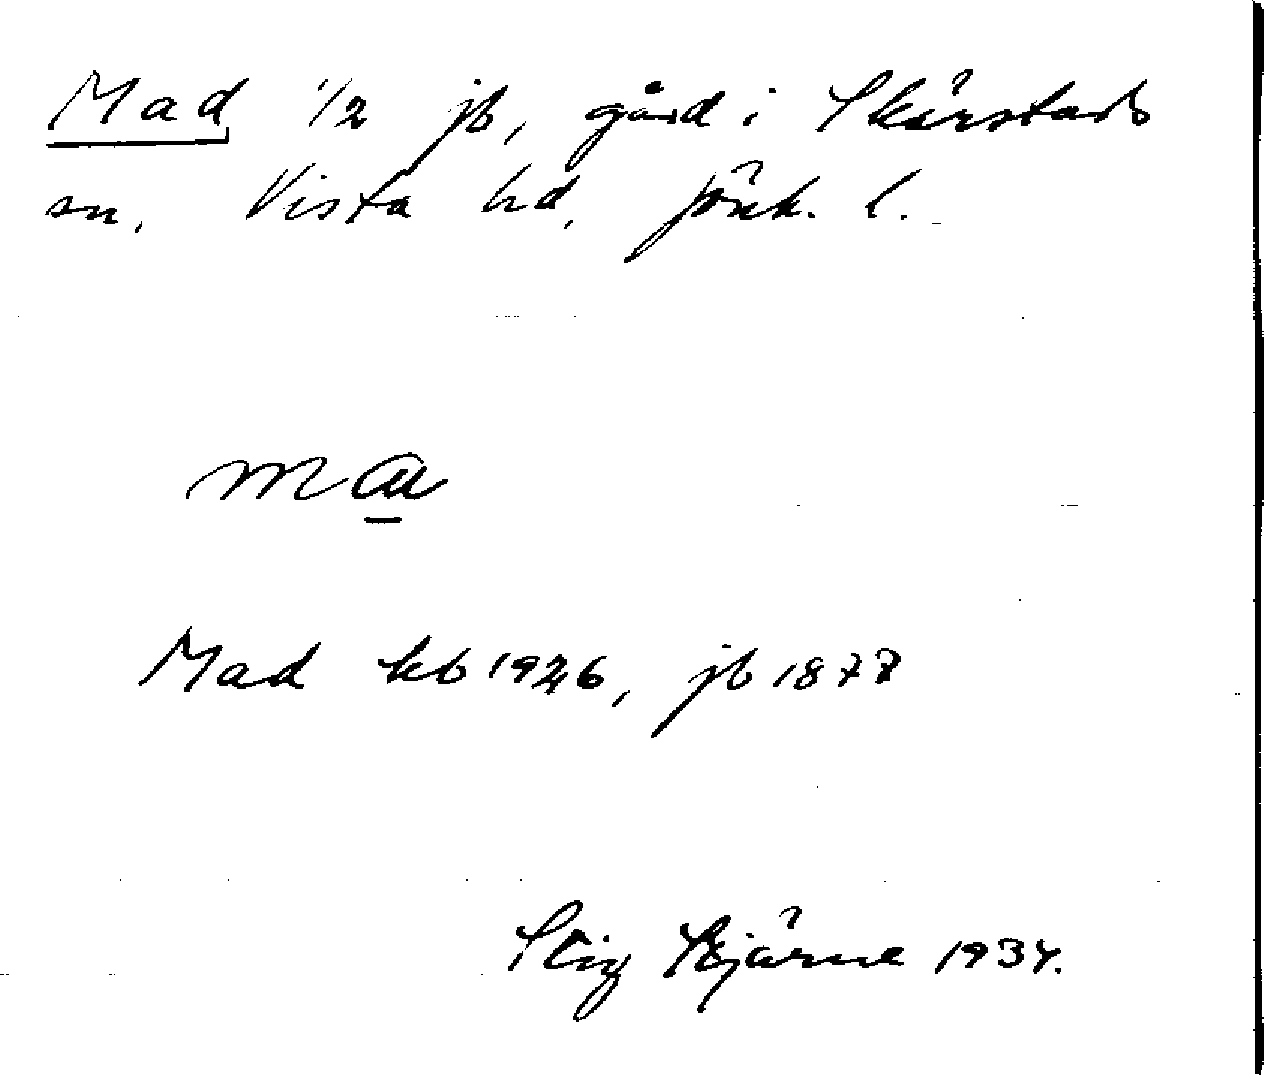 Mad 1/2 jb, gård i Skärstads
sn, Vista hd, Jönk. l.
ma
Mad kb 1926, jb 1877
Stig Stjärne 1934.